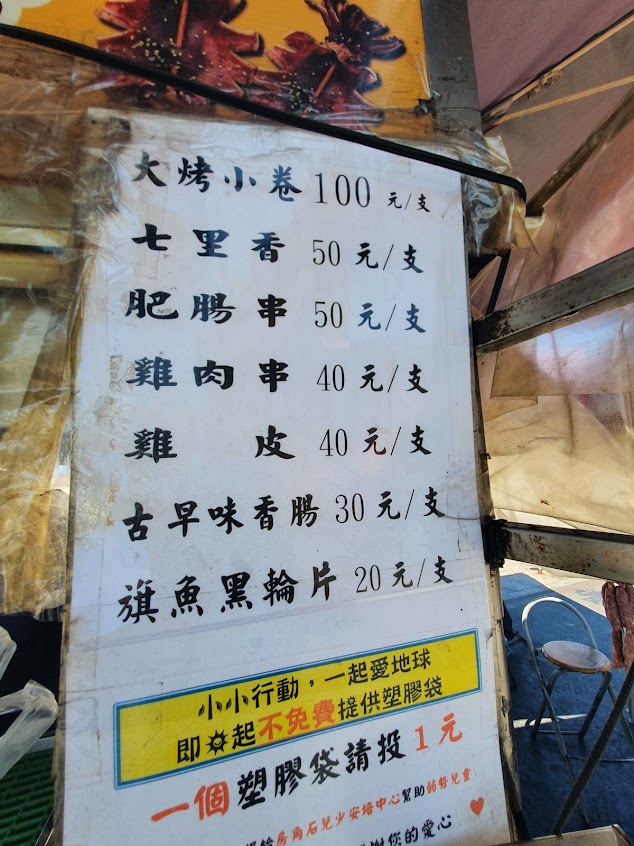 大烤小卷 100 元/支
七里香 50 元/支
肥腸串 50 元/支
雞肉串 40 元/支
雞皮 40 元/支
古早味香腸 30 元/支
旗魚黑輪片 20 元/支
小小行動，一起愛地球
即起不免費提供塑膠袋
一個塑膠袋請投 1 元
房角石兒少安培中心幫助弱勢兒童
您的愛心